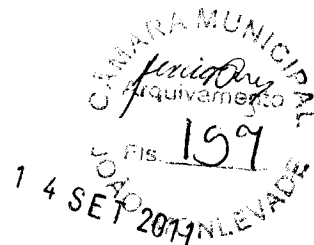 CÂMARA MUNICIPAL
Arquivamento
Fls. 197
JOÃO MONLEVADE
14 SET 2011